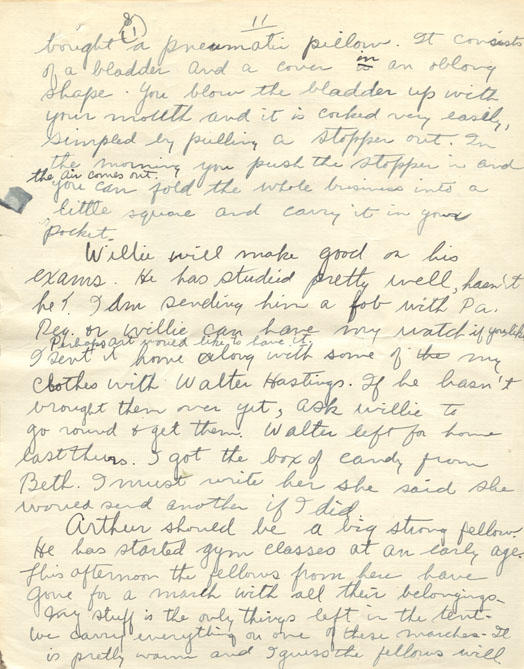 8
(11) 11
bought a pneumatic pillow. It consists
of a bladder and a cover in an oblong
shape. You blow the bladder up with
your mouth and it is corked very easily,
simpled by pulling a stopper out. In
the morning you push the stopper in and
the air comes out.
you can fold the whole business into a
little square and carry it in your
pocket.
Willie will make good on his
exams. He has studied pretty well, hasn't
he? I am sending him a fob with Pa.
Reg. or Willie can have my watch if you like
Perhaps Art would like to have it.
I sent it home along with some of the my
clothes with Walter Hastings. If he hasn't
brought them over yet, ask Willie to
go round & get them. Walter left for home
last Thurs. I got the box of candy from
Beth. I must write her she said she
would send another if I did
Arthur should be a big strong fellow.
He has started gym classes at an early age.
This afternoon the fellows from here have
gone for a march with all their belongings.
My stuff is the only things left in the tent-
we carry everything on one of these marches- It
is pretty warm and I guess the fellows will